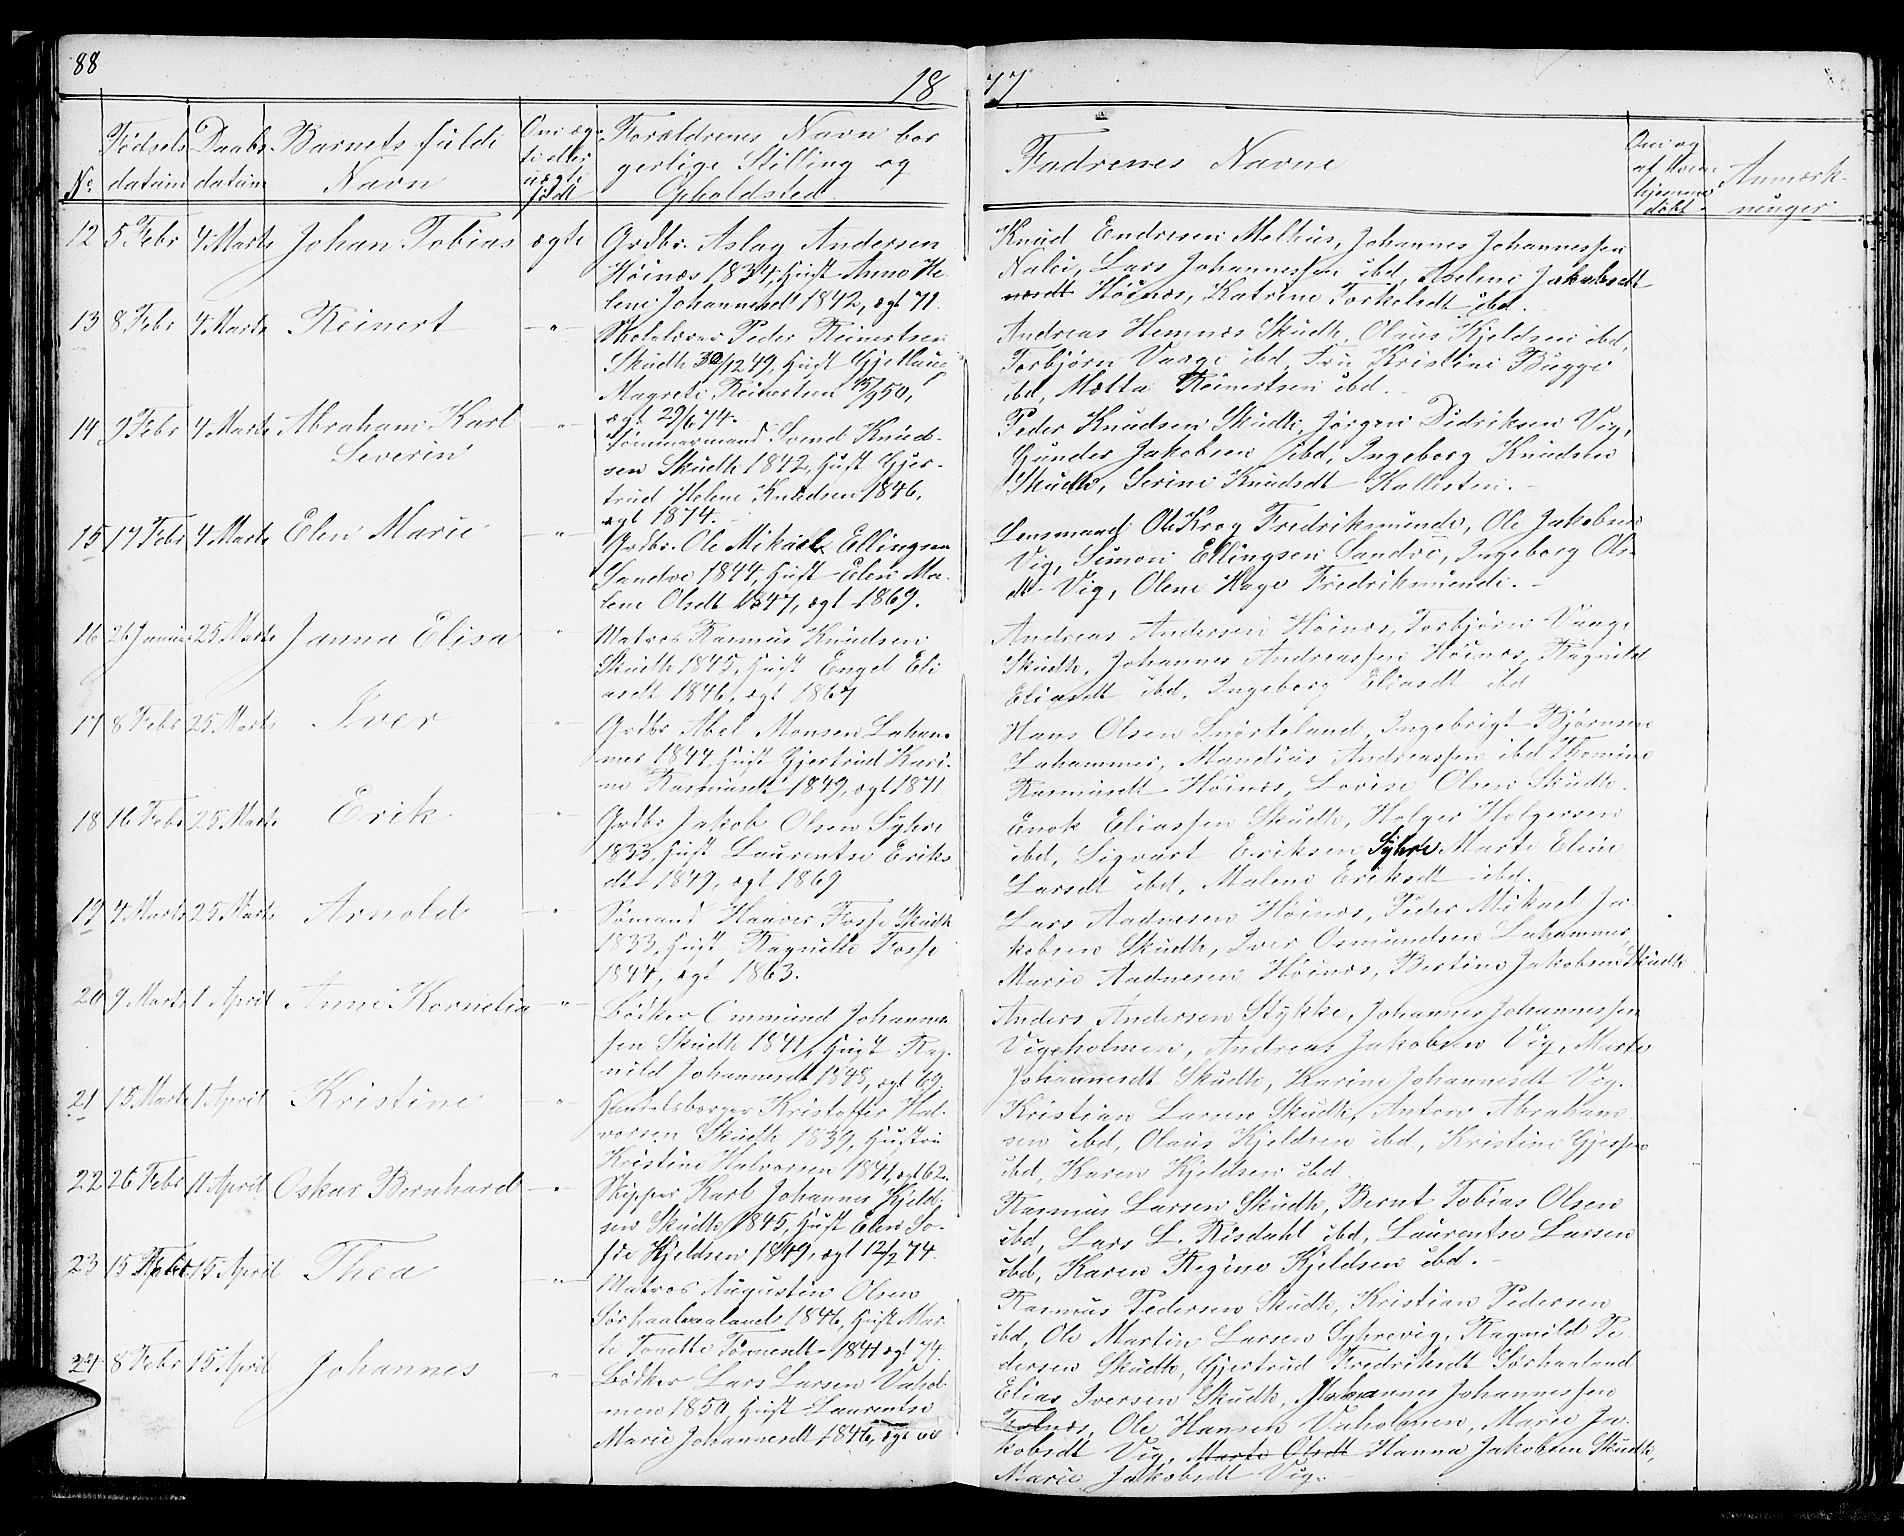 88
1877
No
Fødsels datum
Daabs datum
Barnets fulde Navn
Om ægte eller uægte født
Forældrenes Navn borgerlige Stilling og Opholdsted
Fadrenes Navne
Om og af hvem hjemmedøbt
Anmærkninger
12 5 Febr 4 Marts Johan Tobias ægte Grdbr. Aslag Andersen
Høinæs 1834, Hust Anne He-
lene Johannesdt 1842, ægt 71.
Knud Endresen Melhus, Johannes Johannessen
Nalei, Lars Johannessen ibd, Aselene Jakobsdt
Høinæs, Katrine Torkelsdt ibd.
13 8 Febr 4 Marts Reinert -"- Skolelærer Peder Reinertsen
Skudh 30/12 49, Hust Gjethaug
Magrete Reinertsen 15/9 50,
ægt 29/6 74.
Andreas Hemnæs Skudh, Olaus Kjeldsen ibd,
Torbjørn Vaage ibd, Fru Kristine Bugge
ibd, Mætta Reinertsen ibd.
14 9 Febr 4 Marts Abraham Karl Severin -"- Tømmermand Svend Knud-
sen Skudh 1842, Hust Gjer-
trud Helene Knudsen 1846,
ægt 1874.
Peder Knudsen Skudh, Jørgen Didriksen Vig,
Gunder Jakobsen ibd, Ingeborg Knudsen
Skudh, Serine Knudsdt Kallesten.
15 17 Febr 4 Marts Elen Marie -"- Grdbr. Ole Mikael Ellingsen
Sandve 1844, Hust Elen Ma-
lene Olsdt 1847, ægt 1869.
Lensmand Ole Krog Fredriksmunde, Ole Jakobsen
Vig, Simon Ellingsen Sandve, Ingeborg Ols-
dt Vig, Olene Hage Fredriksmunde.
16 26 Januar 25 Marts Janna Elisa " Matros Rasmus Knudsen
Skudh 1845, Hust Engel Eli
asdt 1846, ægt 1867
Andreas Andersen Høinæs, Torbjørn Vaage
Skudh, Johannes Andreassen Høinæs, Ragnild
Eliasdt ibd, Ingeborg Eliasdt ibd
17 8 Febr 25 Marts Iver -"- Grdbr Abel Monsen Laham-
mer 1844, Hust Gjertrud Kari-
ne Rasmusdt 1849, ægt 1871.
Hans Olsen Snørteland, Ingebrigt Bjørnsen
Lahammer, Mandius Andreassen ibd Thomine
Rasmusdt Høinæs, Lovise Olsen Skudh.
18 16 Febr 25 Marts Erik " Grdbr Jakob Olsen Syhre
1833, Hust Laurentse Eriks
dt 1849, ægt 1869
Enok Eliassen Skudh, Holger Holgersen
ibd, Sigvart Eriksen Syhre, Marte Eline
Larsdt ibd, Malene Eriksdt ibd.
19 4 Marts 25 Marts Arnold -"- Sømand Haaver Fosse Skudh
1833, Hust Ragnilte Fosse
1844, ægt 1863.
Lars Aadnesen Høinæs, Peder Mikael Ja-
kobsen Skudh, Iver Osmundsen Lahammer,
Marie Aadnesen Høinæs, Bertine Jakobsen Skudh
20 9 Marts 1 April Anne Kornelia -"- Bødker Ommund Johannes
sen Skudh 1841, Hust Rag-
nild Johannesdt 1848, ægt 69.
Anders Andersen Stykke, Johannes Johannessen
Vigeholmen, Andreas Jakobsen Vig, Marte
Johannesdt Skudh, Karine Johannesdt Vig.
21 15 Marts 1 April Kristine " Handelsborger Kristoffer Hal-
vorsen Skudh 1839, Hustru
Kristine Halvorsen 1841, ægt 62.
Kristian Larsen Skudh, Anton Abraham
sen ibd, Olaus Kjeldsen ibd, Kristine Gjersen
ibd, Karen Kjeldsen ibd.
22 26 Febr 11 April Oskar Bernhard -"- Skipper Karl Johannes Kjeld-
sen Skudh 1845, Hust Elen So-
fie Kjeldsen 1849, ægt 12/2 74.
Rasmus Larsen Skudh, Bernt Tobias Olsen
ibd, Lars L. Risdahl ibd, Laurentse Larsen
ibd, Karen Regine Kjeldsen ibd.
23 15 Febr 15 April Thea -"- Matros Augustin Olsen
Sørhaalaaland 1846, Hust Mar-
te Tonette Tønnesdt 1841 ægt 74.
Rasmus Pedersen Skudh, Kristian Pedersen
ibd, Ole Martin Larsen Syhrevig, Ragnild Pe
dersen Skudh, Gjertrud Fredriksdt Sørhaaland
24 8 Febr 15 April Johannes -"- Bødker Lars Larsen Vahol-
men 1850, Hust Laurentse
Marie Johannesdt 1846, ægt
Elias Iversen Skudh, Johannes Johannessen
Falnæs, Ole Hansen Vaholmen, Marie Ja-
kobsdt Vig, Marte Olsdt Hanna Jakobsen Skudh,
Marie Jakobsdt Vig.